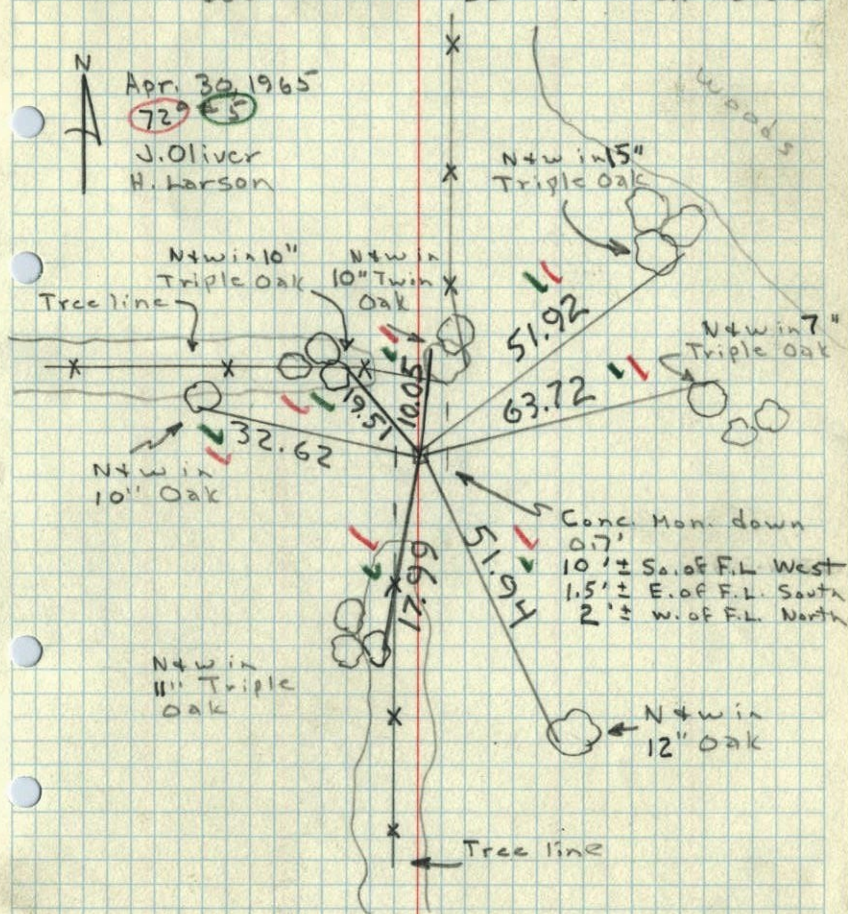 N
Apr. 30, 1965
72° 5
J. Oliver
H. Larson
Woods
N+w in 15"
Triple Oak
N+w in 10"
Triple Oak
N+w in
10" Twin
Oak
Tree line
N+w in 7"
Triple Oak
51.92
63.72
10.05
19.51
32.62
N+w in
10" Oak
Conc. Mon. down
0.7'
10'± So. of F.L. West
1.5'± E. of F.L. South
2'± W. of F.L. North
51.94
17.99
N+w in
11" Triple
Oak
N+w in
12" Oak
Tree line